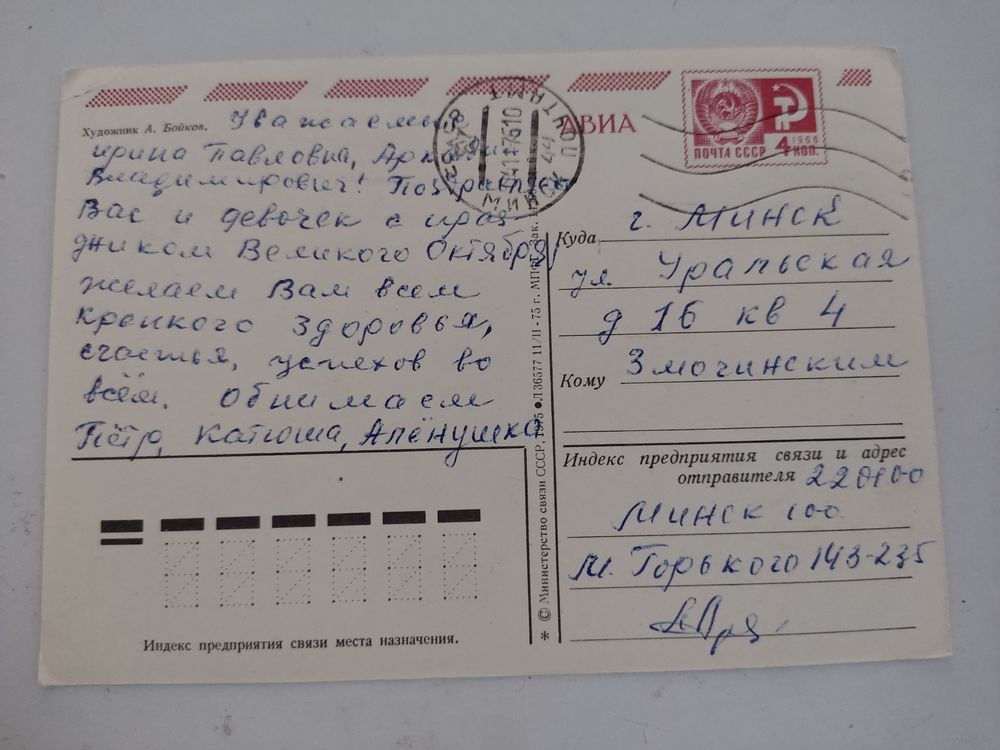 АВИА
ПОЧТА СССР
4 КОП.
1966
Художник А. Бойков.
Уважаемые
Ирина Павловна,
Владимирович! Поздравляем
Вас и девочек с праз
дником Великого Октября,
желаем Вам всем
крепкого здоровья,
счастья, успехов во
всём. Обнимаем
Пётр, Катюша, Алёнушка
МИНСК
ПОЧТАМТ
© Министерство связи СССР, 1975 Л 36577 11/II-75 г. МПФГ. Зак.
Куда г. Минск
ул. Уральская
д 16 кв 4
Кому Змочинским
Индекс предприятия связи и адрес
отправителя 220100
Минск 100
М. Горького 143-235
Индекс предприятия связи места назначения.